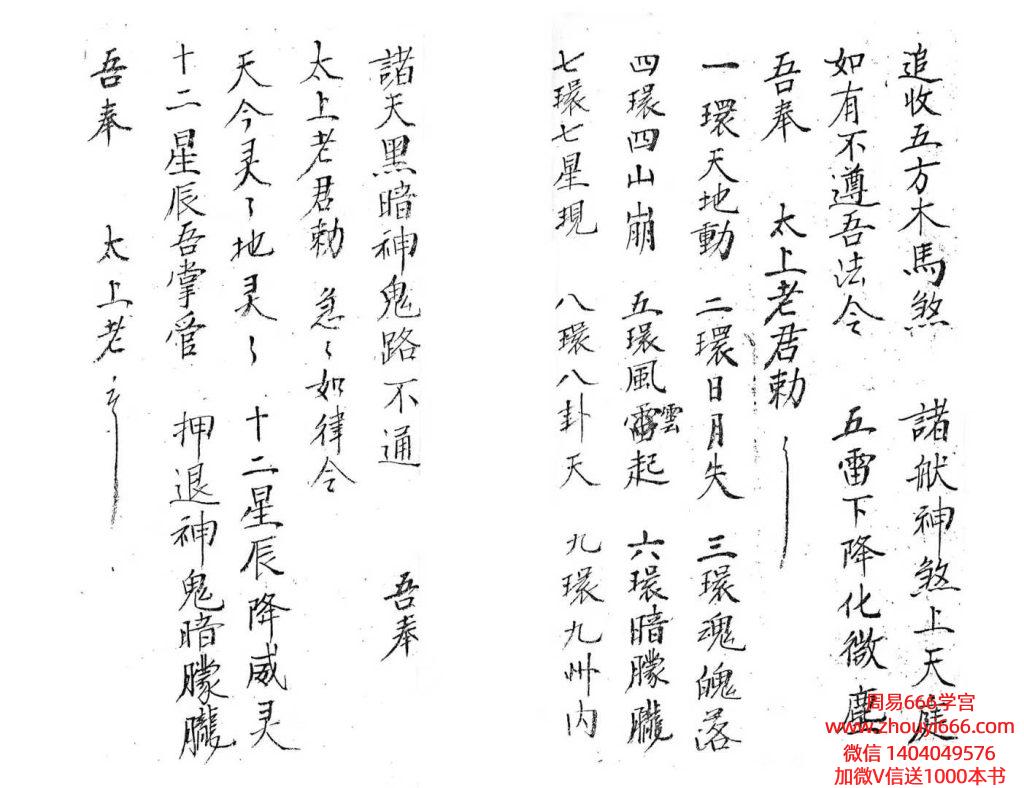 追收五方木馬煞　諸般神煞上天庭
如有不遵吾法令　五雷下降化微塵
吾奉　太上老君勅
一環天地動　二環日月失　三環魂魄落
四環四山崩　五環風雲雷起　六環暗朦朧
七環七星現　八環八卦天　九環九州内
諸天黑暗神鬼路不通　吾奉
太上老君勅　急〻如律令
天今灵〻地灵〻　十二星辰降威灵
十二星辰吾掌管　押退神鬼暗朦朧
吾奉　太上老
周易666学宫
www.zhouyi666.com
微信 1404049576
加微V信送1000本书